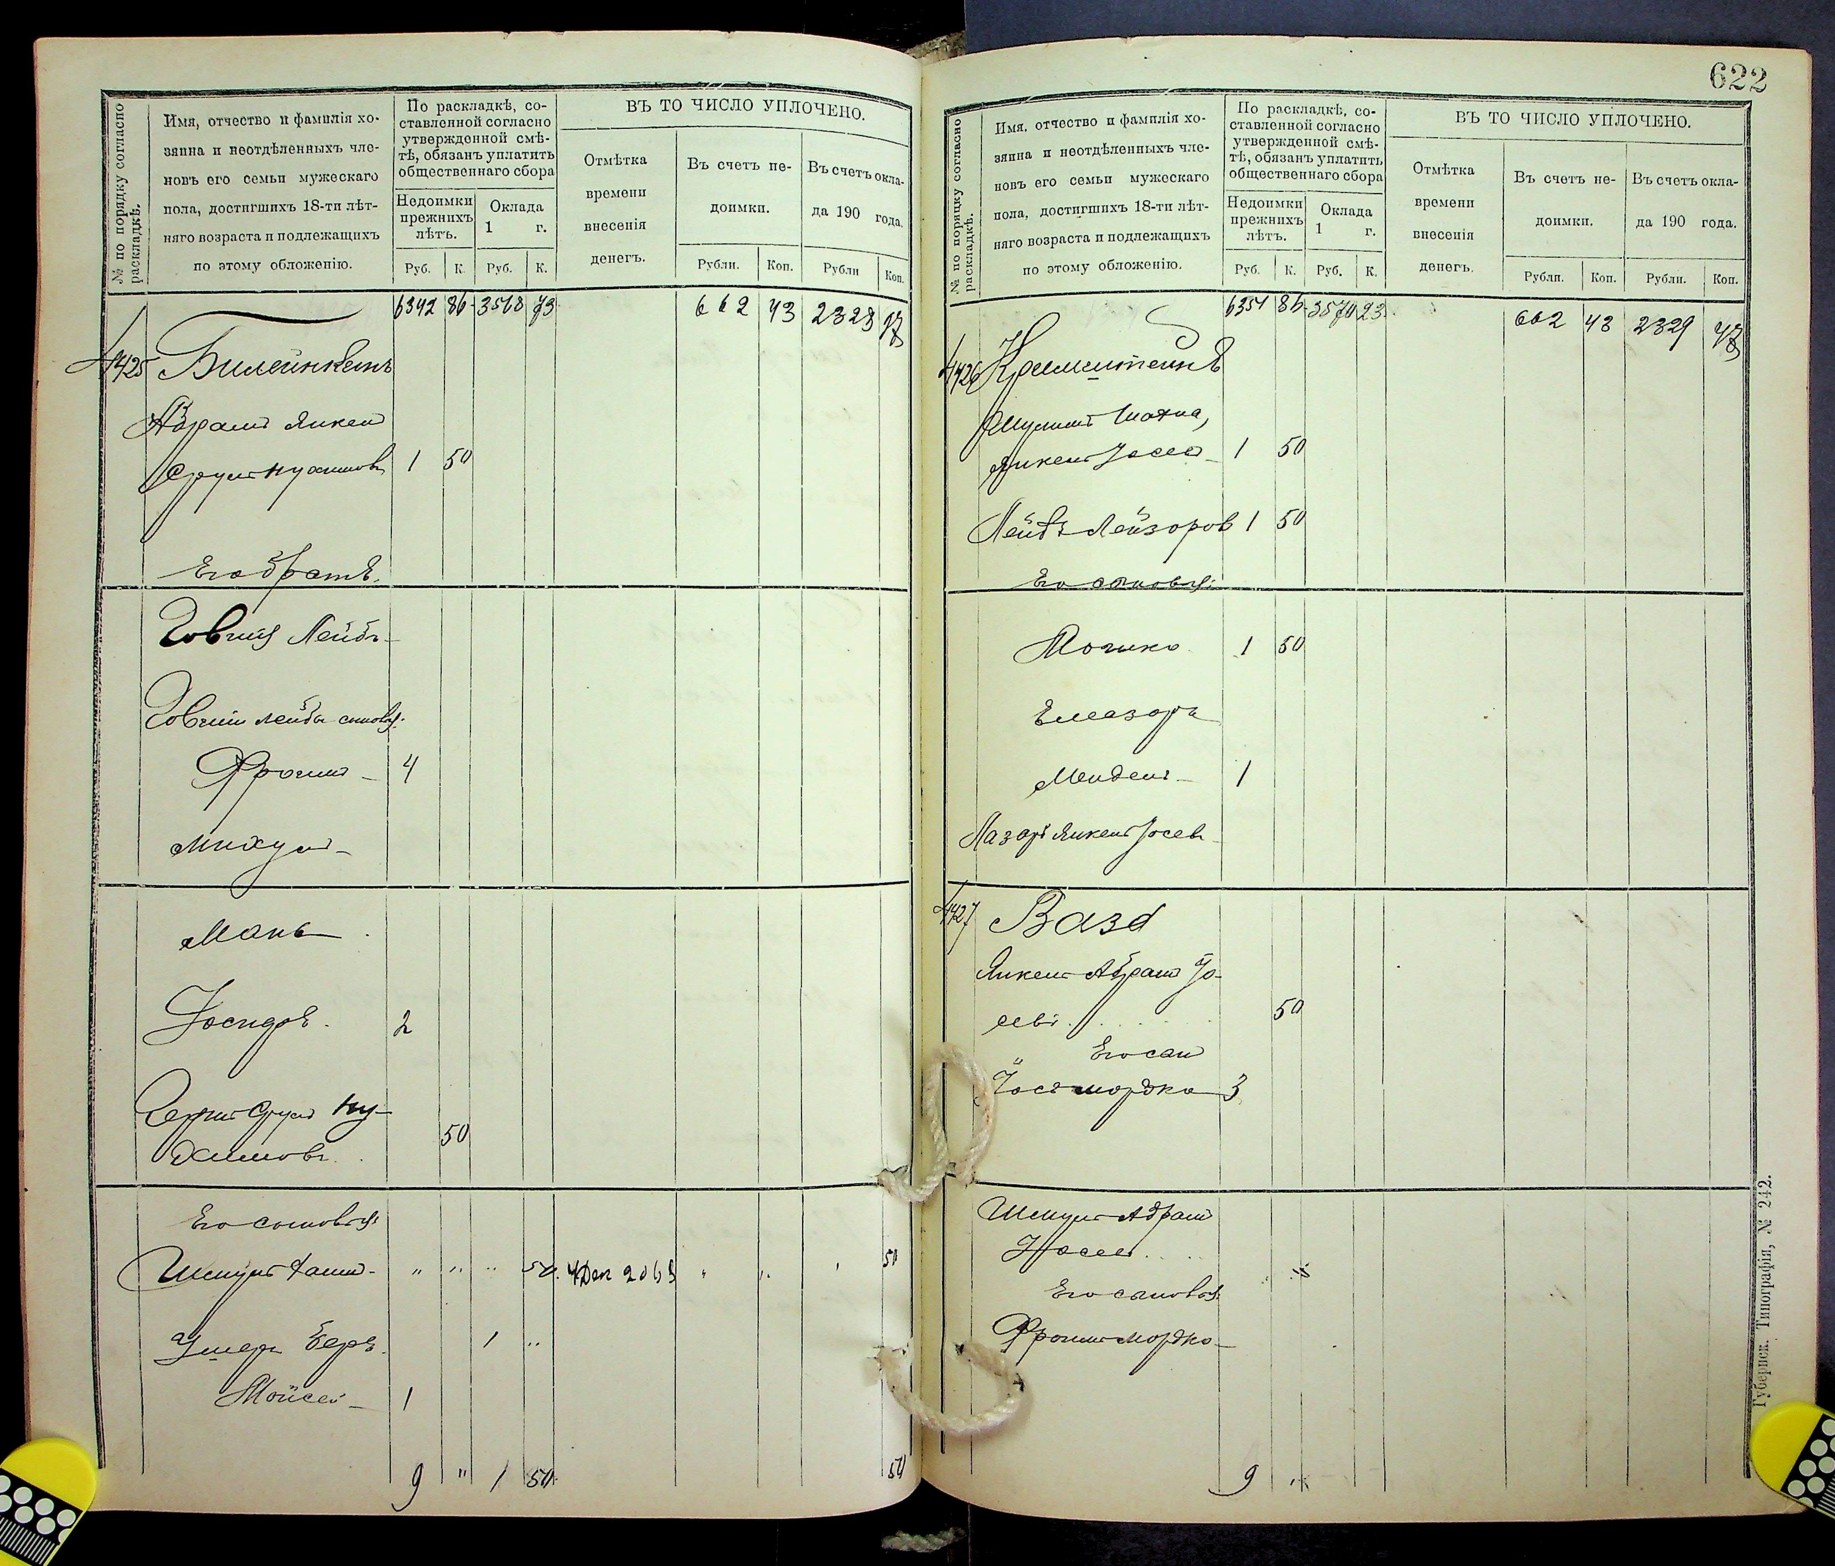 622
№ по порядку согласно раскладкѣ.
Имя, отчество и фамилія хо-
зяина и неотдѣленныхъ чле-
новъ его семьи мужескаго
пола, достигшихъ 18-ти лѣт-
няго возраста и подлежащихъ
по этому обложенію.
По раскладкѣ, со-
ставленной согласно
утвержденной смѣ-
тѣ, обязанъ уплатить
общественнаго сбора
Недоимки
прежнихъ
лѣтъ.
Оклада
1 г.
Руб. К. Руб. К.
ВЪ ТО ЧИСЛО УПЛОЧЕНО.
Отмѣтка
времени
внесенія
денегъ.
Въ счетъ не-
доимки.
Въ счетъ окла-
да 190 года.
Рубли. Коп. Рубли Коп.
6342 86 3568 73 662 43 2328 97
4425 Билеинкенъ
Абрамъ Янкель
Сруль Нухимовъ 1 50
Его братъ.
Говший Лейбъ
Говший Лейбы сыновья:
Фроимъ 4
Михуль
Мань
2
Сруль Ну-
химовъ 50
Его сыновья:
Шмуль Хаимъ " " " 50 4 Дек 2063 " " " 50
Умеръ Беръ. 1 "
Мойсей 1
9 " 1 50 50
№ по порядку согласно раскладкѣ.
Имя, отчество и фамилія хо-
зяина и неотдѣленныхъ чле-
новъ его семьи мужескаго
пола, достигшихъ 18-ти лѣт-
няго возраста и подлежащихъ
по этому обложенію.
По раскладкѣ, со-
ставленной согласно
утвержденной смѣ-
тѣ, обязанъ уплатить
общественнаго сбора
Недоимки
прежнихъ
лѣтъ.
Оклада
1 г.
Руб. К. Руб. К.
ВЪ ТО ЧИСЛО УПЛОЧЕНО.
Отмѣтка
времени
внесенія
денегъ.
Въ счетъ не-
доимки.
Въ счетъ окла-
да 190 года.
Рубли. Коп. Рубли. Коп.
6351 86 3570 23 662 43 2329 47
4426 Кримштейнъ
Шулимъ Шахна,
Янкель Іосел 1 50
Лейбъ Лейзоров 1 50
Его сыновья:
Мошко 1 50
Елеазаръ
Мендель 1
Лазарь Янкель Іосев
4427 Вазд
Янкель Абрам Іо-
севъ 50
Его сын
Іось Мордко 3
Шмуль Абрам
Іосел
Его сыновья:
Фроим Мордко
9 "
Губернск. Типографія, № 242.